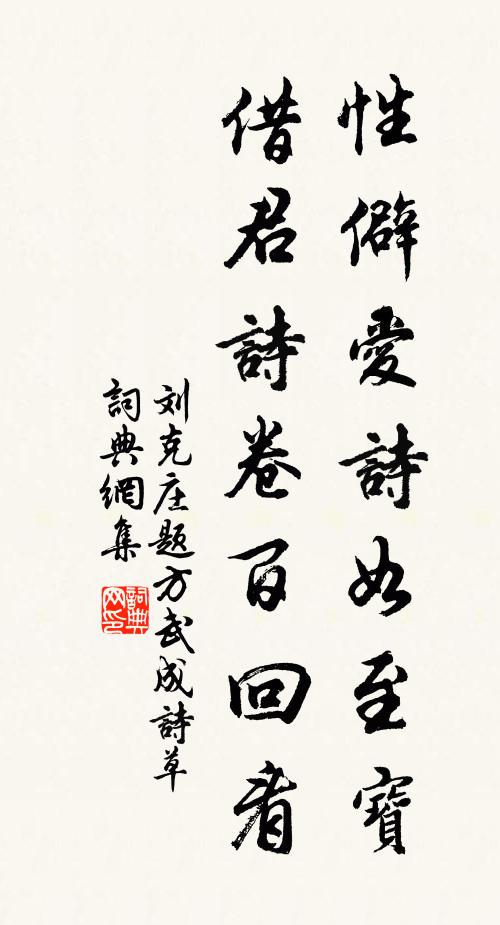 性僻愛詩如至寶
借君詩卷百回看
刘克庄題方武成詩草
詞典網集
詞典网印